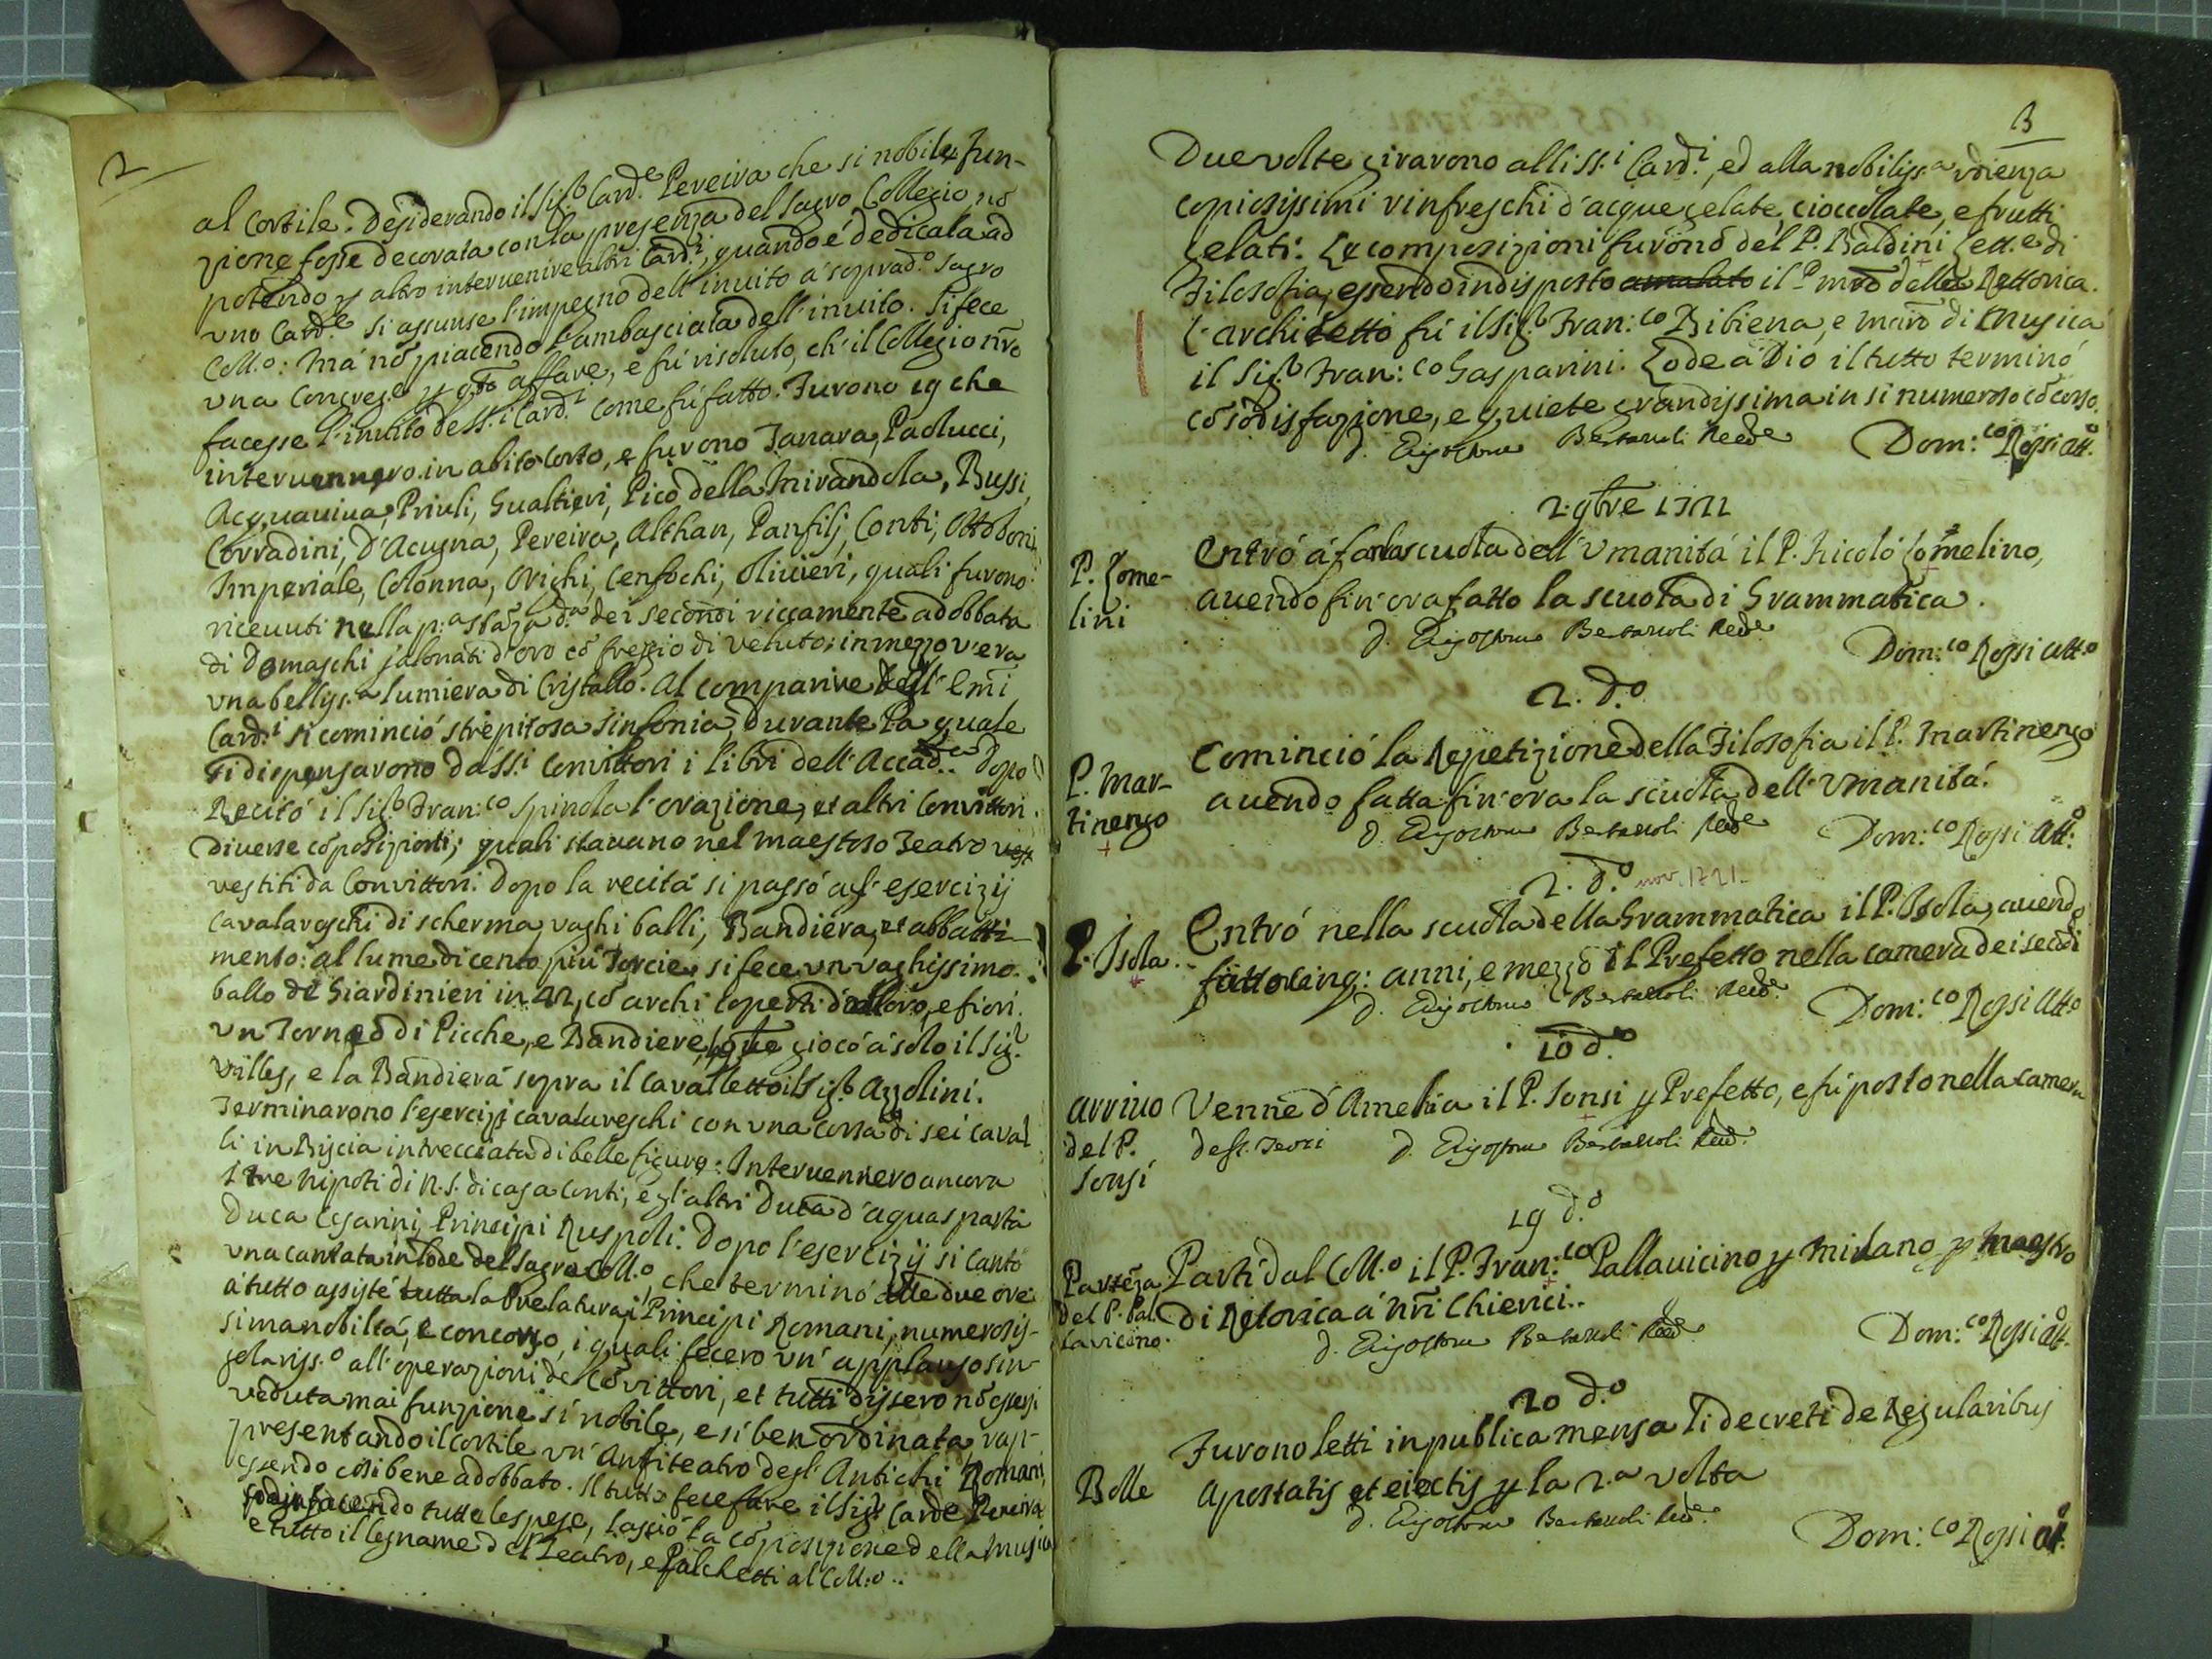 2
al Cortile. Desiderando il Sig.r Card.e Pereira che si nobile fun-
zione fosse decorata con la presenza del Sagro Collegio, nō
potendo p altro intervenire altri Card.i, quando é dedicata ad
uno Card.e si assunse l'impegno dell'invito á soprad.o Sagro
Coll.o: má nō piacendo l'ambasciata dell'invito. Si fece
una Congreg.e p q̄to affare, e fú risoluto, ch'il Collegio nr̄o
facesse l'invito dess.i Card.i come fú fatto. Furono 19 che
intervennero in abito corto, e furono Tanara, Paolucci,
Acquaviva, Priuli, Gualtieri, Pico della Mirandola, Bussi,
Corradini, D'Acugna, Pereira, Althan, Panfilj, Conti, Ottoboni,
Imperiale, Colonna, Orighi, Cenfochi, Olivieri, quali furono
ricevuti nella p:a stāza d.a dei secondi riccamente adobbata
di Domaschi jalonati d'oro cō freggio di veluto; in mezzo v'era
una belliss.a lumiera di Cristallo. Al comparire degl'Emi
Card.i si cominció strepitosa sinfonia, durante la quale
si dispensarono da SS.i Convittori i libri dell'Accad.a dopo
Recitó il Sig.r Fran:co Spinola l'orazione, et altri Convittori
diverse cōposizioni, quali stavano nel maestoso Teatro vest
vestiti da Convittori. Dopo la recita si passó agl'esercizij
cavalareschi di scherma, vaghi balli, Bandiera, et abbatti-
mento: al lume di cento, più Torcie, si fece un vaghissimo
ballo dé Giardinieri in 22, cō archi coperti d'alloro, e fiori.
un Torneo di Picche, e Bandiere, giocó á solo il Sig.r
Villes, e la Bandiera sopra il cavalletto il Sig.r Azzolini.
Terminarono l'esercizij cavalareschi con una corsa di sei caval-
li in Biscia intrecciata di belle figure: Intervennero ancora
i tre Nipoti di N.S. di casa Conti, e gl'altri Duca d'aguasparta
Duca Cesarini, Principi Ruspoli. Dopo l'esercizij si cantò
una cantata in lode del Sagro Coll.o che terminó alle due ore
á tutto assisté tutta la Prelatura, i Principi Romani, numerosis-
sima nobiltá, e concorso, i quali fecero un'applauso sin-
golariss.o all'operazioni de Cōvittori, et tutti dissero nō essersi
veduta mai funzione si nobile, e si ben ordinata, rap-
presentando il Cortile un'Anfiteatro degl'Antichi Romani,
essendo cosi bene adobbato. Il tutto fece fare il Sig.r Card.e Pereira
sodisfacendo tutte le spese, lasció la cōposizione della Musica
e tutto il legname del Teatro, e Palchetti al Coll:o..
3
Due volte girarono alli SS.i Card.i, ed alla nobiliss.a udienza
copiosissimi rinfreschi d'acque gelate, cioccolate, e frutti
gelati. Le composizioni furono del P. Baldini Lett.e di
Filosofia, essendo indisposto amalato il P mr̄o della Rettorica.
L'architetto fú il Sig.r Fran:co Bibiena, e mar̄o di Musica
il Sig.r Fran:co Gasparini. Lode a Dio il tutto terminó
cō sodisfazione, e quiete grandissima in si numeroso cōcorso.
D. Bertazzoli Rett.e Dom:co Rossi Att.o
2. 9bre 1721
P. Lome-
lini
Entró á far la scuola dell'Umanitá il P. Nicoló Lomelino,
avendo fin'ora fatto la scuola di Grammatica.
D. Bertazzoli Rett.e
Dom:co Rossi Att.o
2. d.o
P. Mar-
tinengo
Cominció la Repetizione della Filosofia il P. Martinengo
avendo fatta fin'ora la scuola dell'Umanitá.
D. Bertazzoli Rett.e Dom:co Rossi Att:o
2. d.o nov. 1721.
P. Isola.
Entró nella scuola della Grammatica il P. Isola, avendo
fatto cinq: anni, e mezzo il Prefetto nella camera dei secōdi
D. Bertazzoli Rett.e Dom:co Rossi Att:o
10 d.o
arrivo
del P.
Sonsi
Venne d'Amelia il P. Sonsi p Prefetto, e fú posto nella camera
de SS. Terzi D. Bertazzoli Rett.e
19 d.o
Partēza
del P. Pal-
lavicino.
Partí dal Coll.o il P. Fran:co Pallavicino p Milano p Maestro
di Retorica á nr̄i Chierici..
D. Bertazzoli Rett.e
Dom:co Rossi Att.o
20 d.o
Bolle
Furono letti in publica mensa li decreti de Regularibus
Apostatis et eiectis p la 2.a volta
D. Bertazzoli Rett.e
Dom:co Rossi Att.o